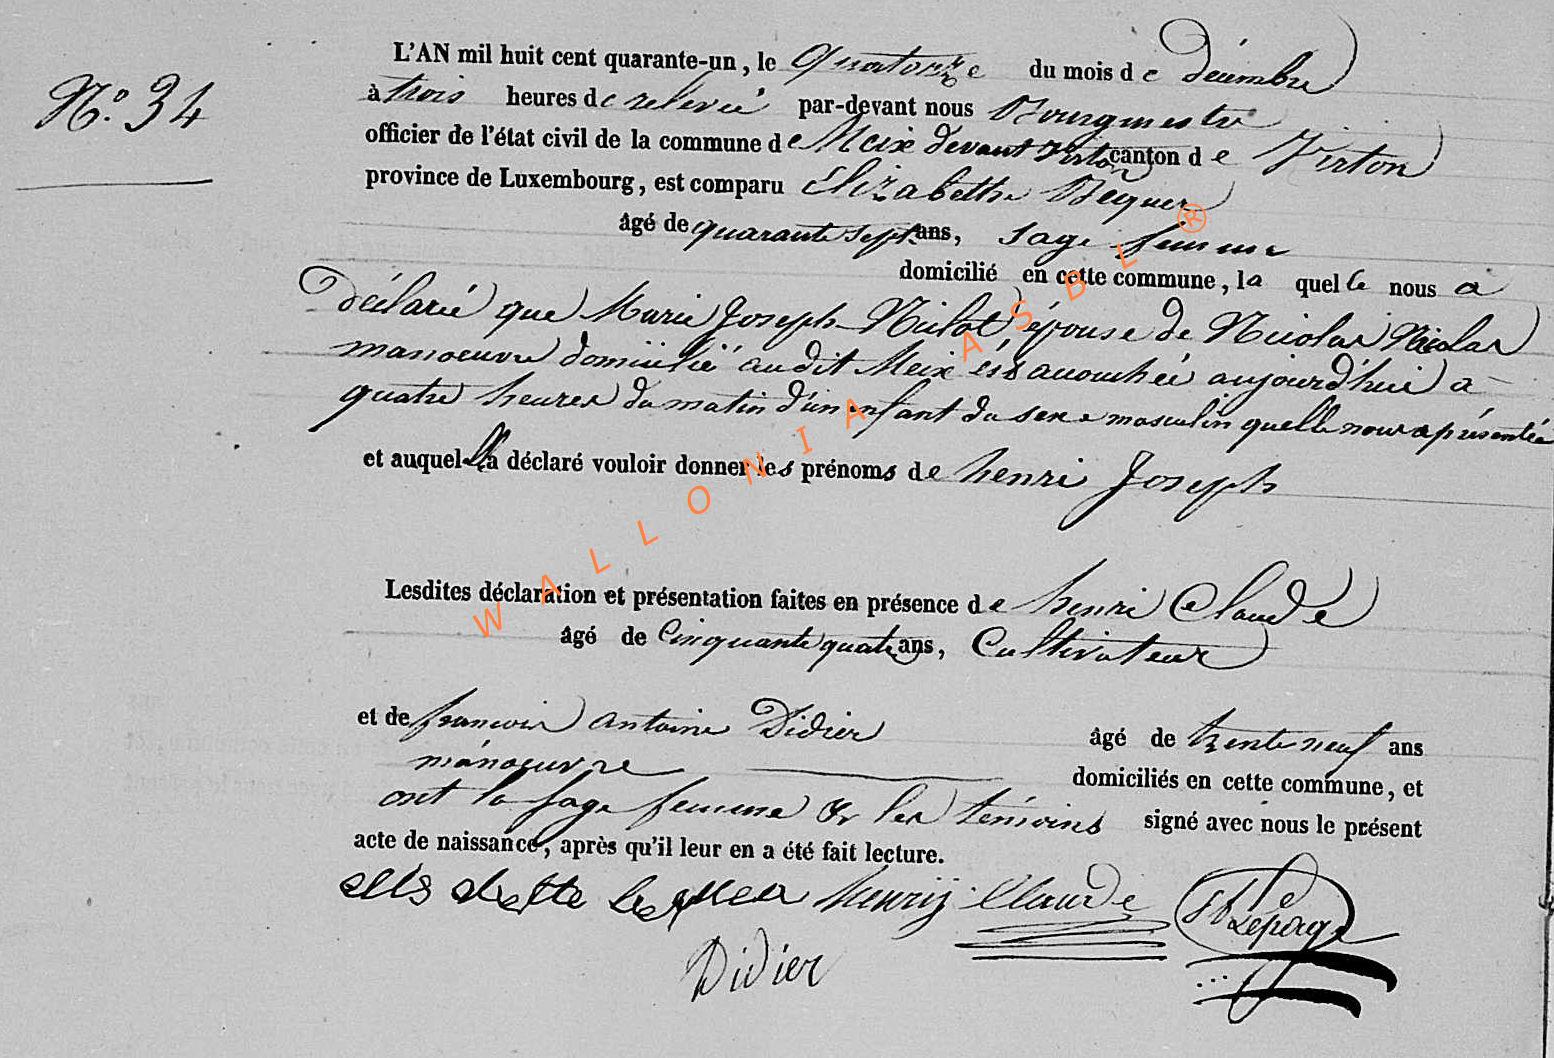 N.° 34
L'AN mil huit cent quarante-un, le Quatorze du mois de décembre
à trois heures de relevée par-devant nous Bourgmestre
officier de l'état civil de la commune de Meix devant Virton canton de Virton
province de Luxembourg, est comparu Elizabethe Bequer
âgé de quarante sept ans, sage femme
domicilié en cette commune, la quelle nous a
déclaré que Marie Joseph épouse de Nicolas Nicolas
manoeuvre domicilié audit Meix est accouchée aujourd'hui a
quatre heures du matin d'un enfant du sexe masculin quelle nous a présentée
et auquel Ella déclaré vouloir donner les prénoms de henri Joseph
Lesdites déclaration et présentation faites en présence de henri Claude
âgé de Cinquante quatre ans, Cultivateur
et de francois antoine Didier âgé de trente neuf ans
manoeuvre domiciliés en cette commune, et
ont la sage femme & les témoins signé avec nous le présent
acte de naissance, après qu'il leur en a été fait lecture.
henrij Claude Lepage
Didier
WALLONIA ASBL ®